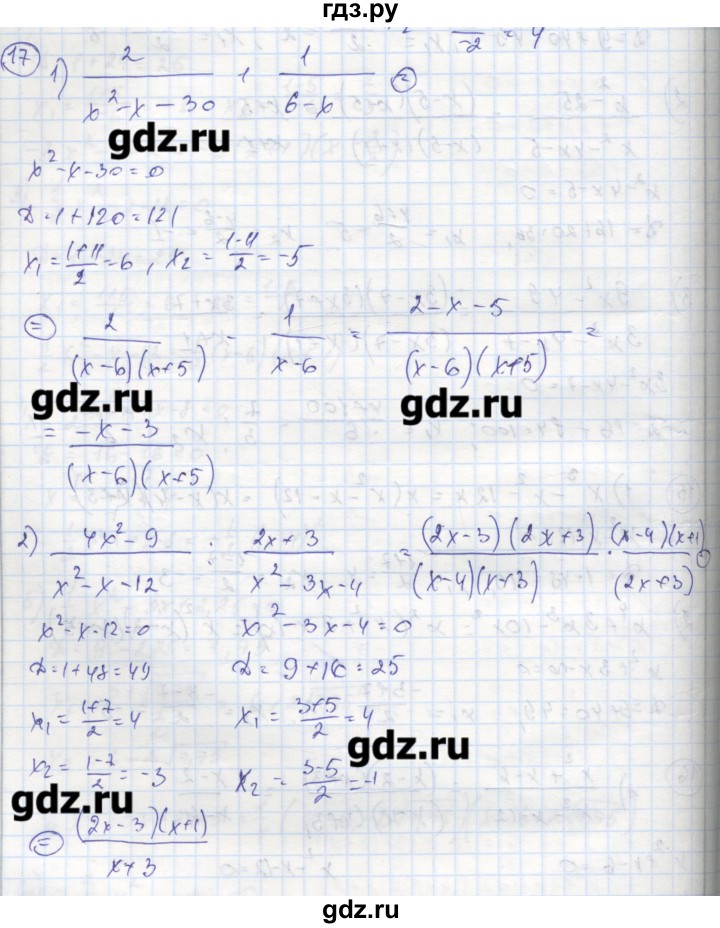 гдз.ру
17
1) 2/(x²-x-30) + 1/(6-x) =
gdz.ru
x²-x-30=0
D=1+120=121
x₁=(1+11)/2=6, x₂=(1-11)/2=-5
= 2/((x-6)(x+5)) - 1/(x-6) = (2-x-5)/((x-6)(x+5)) =
gdz.ru gdz.ru
= (-x-3)/((x-6)(x+5))
2) (4x²-9)/(x²-x-12) : (2x+3)/(x²-3x-4) = ((2x-3)(2x+3))/((x-4)(x+3)) · ((x-4)(x+1))/(2x+3) =
x²-x-12=0 x²-3x-4=0
D=1+48=49 D=9+16=25
x₁=(1+7)/2=4 x₁=(3+5)/2=4
gdz.ru
x₂=(1-7)/2=-3 x₂=(3-5)/2=-1
gdz.ru
= ((2x-3)(x+1))/(x+3)
gdz.ru